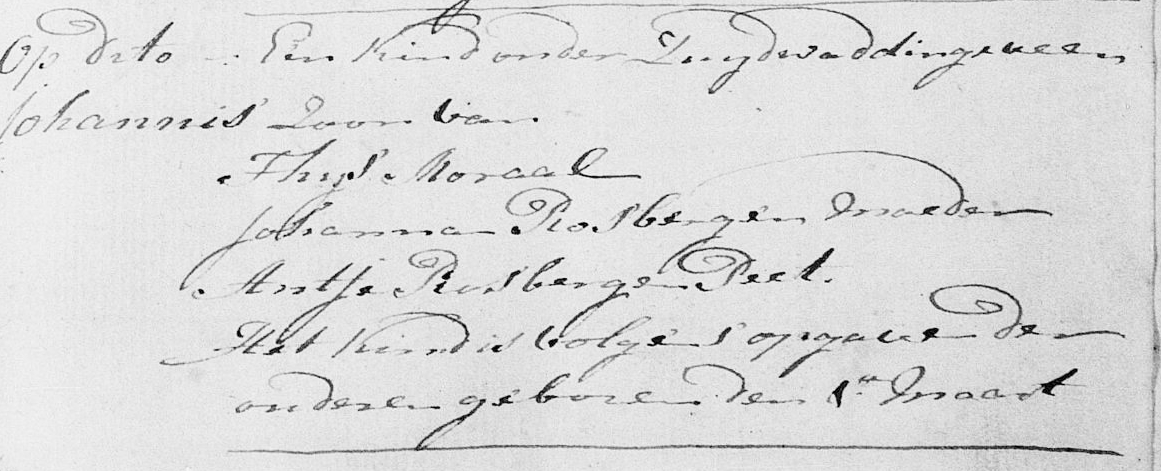 Op dito - Een Kind onder Zuydwaddingsveen
Johannis Zoon van
Thijs Moraal
Johanna Rosbergen Moeder
Antje Rosbergen Peet.
Het kind is volgens opgave der
ouderen geboren den 1en Maart